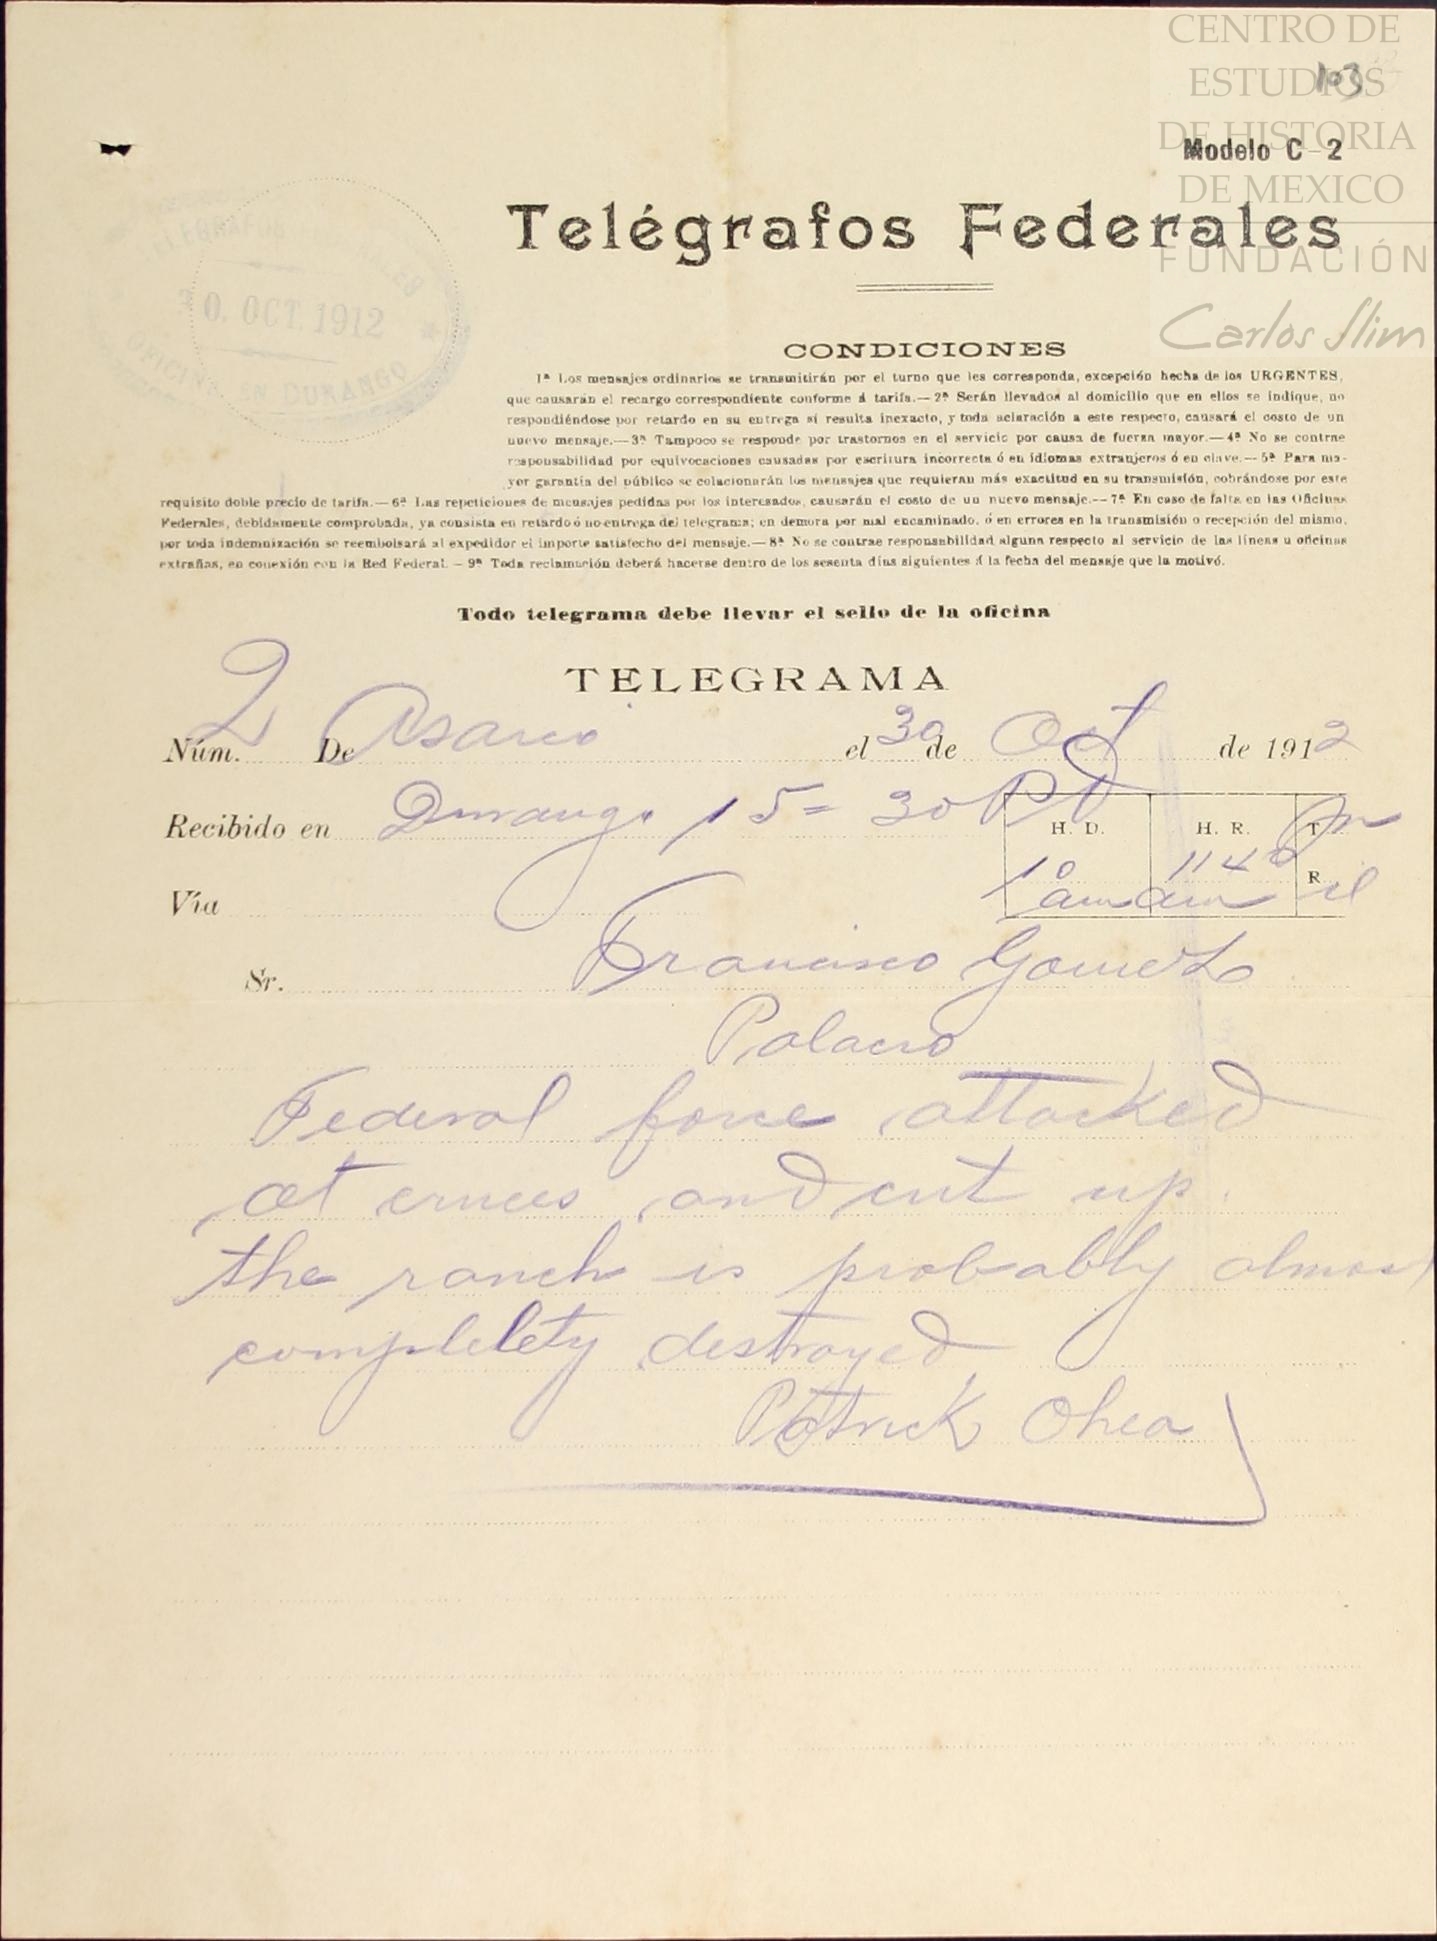 CENTRO DE
ESTUDIOS
DE HISTORIA
DE MEXICO
FUNDACIÓN
Carlos Slim
103
Modelo C-2
Telégrafos Federales
30. OCT. 1912
OFICINA EN DURANGO
CONDICIONES
1ª Los mensajes ordinarios se transmitirán por el turno que les corresponda, excepción hecha de los URGENTES,
que causarán el recargo correspondiente conforme á tarifa.—2ª Serán llevados al domicilio que en ellos se indique, no
respondiéndose por retardo en su entrega si resulta inexacto, y toda aclaración a este respecto, causará el costo de un
nuevo mensaje.—3ª Tampoco se responde por trastornos en el servicio por causa de fuerza mayor.—4ª No se contrae
responsabilidad por equivocaciones causadas por escritura incorrecta ó en idiomas extranjeros ó en clave.—5ª Para ma-
yor garantía del público se colacionarán los mensajes que requieran más exactitud en su transmisión, cobrándose por este
requisito doble precio de tarifa.—6ª Las repeticiones de mensajes pedidas por los interesados, causarán el costo de un nuevo mensaje.—7ª En caso de falta en las Oficinas
Federales, debidamente comprobada, ya consista en retardo ó no entrega del telegrama; en demora por mal encaminado, ó en errores en la transmisión o recepción del mismo,
por toda indemnización se reembolsará al expedidor el importe satisfecho del mensaje.—8ª No se contrae responsabilidad alguna respecto al servicio de las líneas u oficinas
extrañas, en conexión con la Red Federal.—9ª Toda reclamación deberá hacerse dentro de los sesenta días siguientes á la fecha del mensaje que la motivó.
Todo telegrama debe llevar el sello de la oficina
TELEGRAMA
Núm. 2 De Asarco el 30 de Oct de 1912
Recibido en Durango 15= 30 Pd
H. D. H. R. T.
10 am 1140 am R.
Vía
Sr. Francisco Gomez
Palacio
Federal force attacked
at cruces and cut up.
the ranch is probably almost
completety destroyed
Patrick Ohea